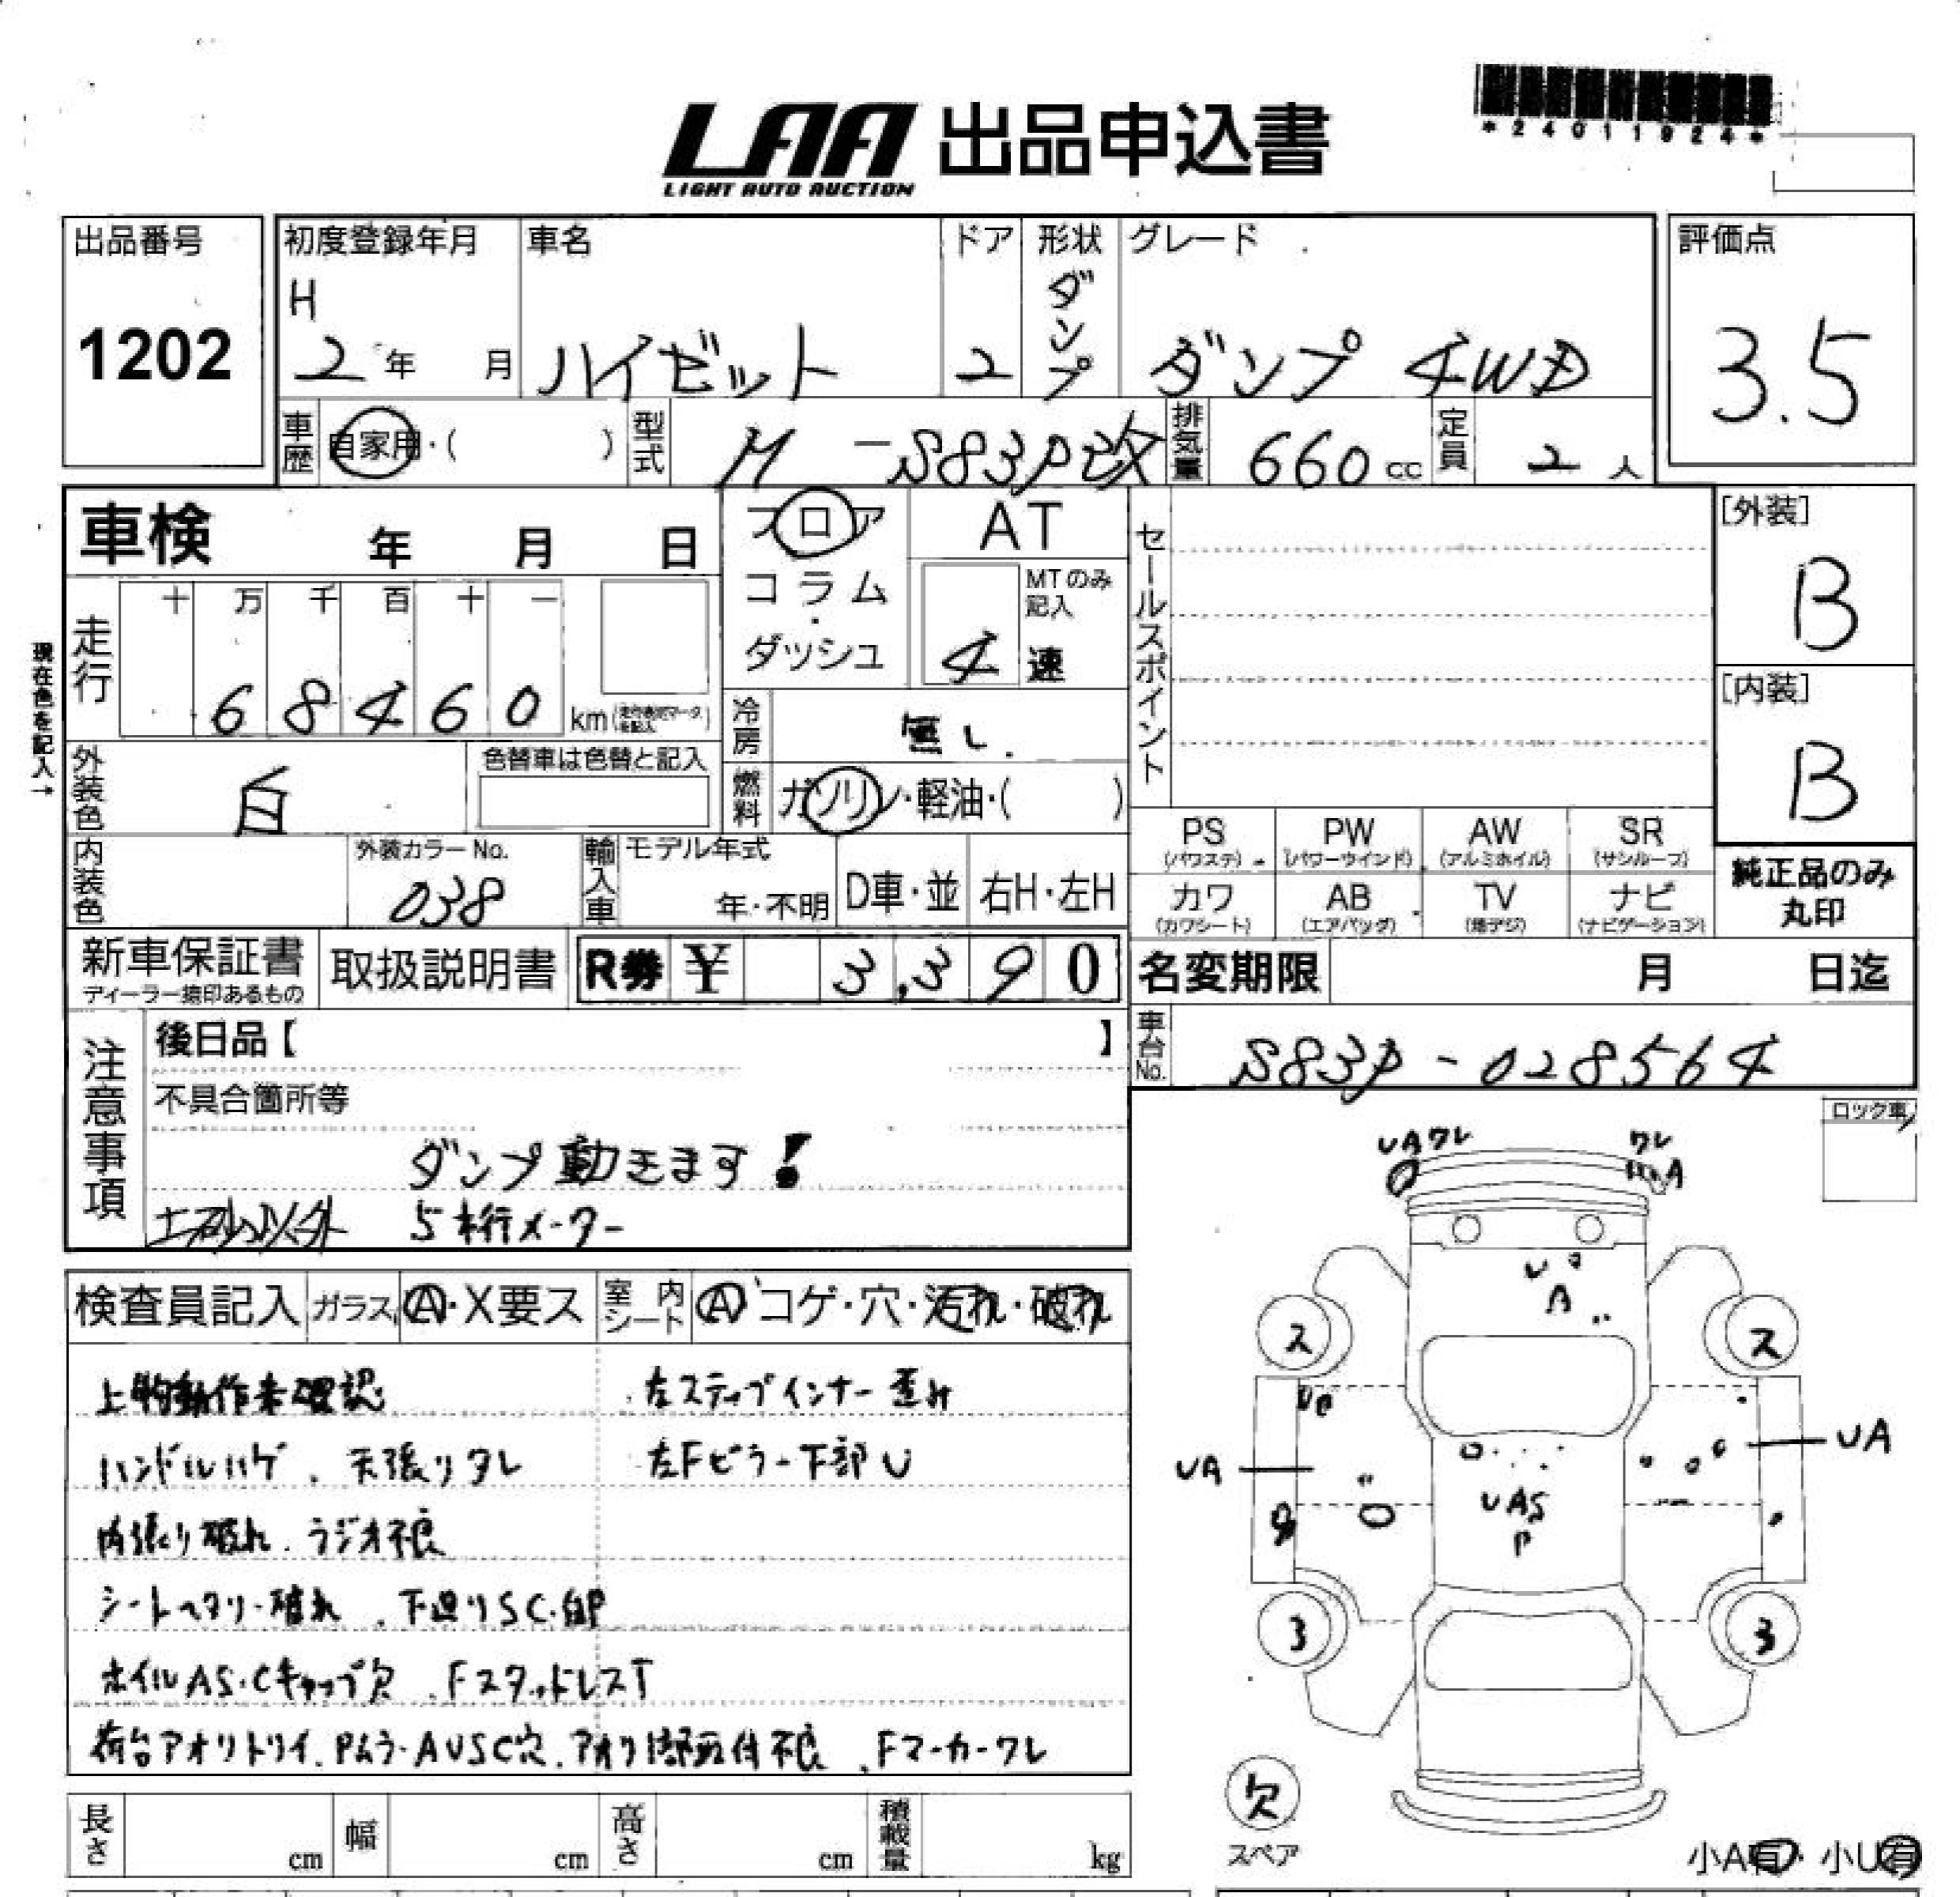 *24011924*
LAA 出品申込書
LIGHT AUTO AUCTION
出品番号 初度登録年月 車名 ドア 形状 グレード 評価点
1202 H 2年 月 ハイゼット 2 ダンプ ダンプ 4WD 3.5
車歴 自家用・( ) 型式 M-S83P改 排気量 660cc 定員 2人
車検 年 月 日 フロア AT セールスポイント [外装]
コラム・ MTのみ記入 B
ダッシュ 4速
現在色を記入→
走行 十 万 千 百 十 一
68460 km
冷房 無し. [内装]
外装色 白 色替車は色替と記入 燃料 ガソリン・軽油・( ) B
PS PW AW SR
(パワステ) (パワーウインド) (アルミホイル) (サンルーフ)
内装色 外装カラーNo. 038 輸入車 モデル年式 年・不明 D車・並 右H・左H
カワ AB TV ナビ 純正品のみ丸印
(カワシート) (エアバッグ) (地デジ) (ナビゲーション)
新車保証書 取扱説明書 R券 ¥ 3,390 名変期限 月 日迄
ディーラー捺印あるもの
注意事項 後日品【 】 車台No. S83P-028564
不具合箇所等
ダンプ動きます!
土砂以外 5桁メーター
ロック車
検査員記入 ガラス A・X要ス 室内シート A コゲ・穴・汚れ・破れ
上物動作未確認 左ステップインナー歪み
ハンドルハゲ、天張りタレ 左Fピラー下部U
内張り破れ、ラジオ不良
シートヘタリ・破れ、下廻りSC・
ホイルAS・Cキャップ欠、FスタッドレスT
荷台アオリトリイ、Pムラ・AUSC穴、アオリ 取付不良、Fマーカーワレ
UAワレ ワレ
A
U
A
ス ス
UA UA
UAS
P
3 3
欠
スペア
小A有・小U有
長さ cm 幅 cm 高さ cm 積載量 kg